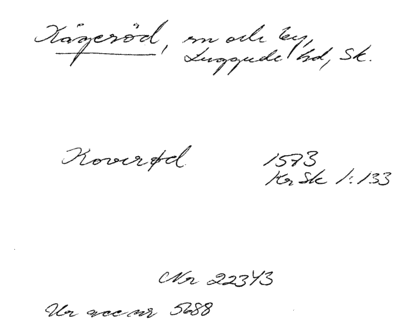 Kågeröd, sn och by,
Luggude hd, Sk.
Koverød 1573
Kr Sk 1:133
Nr 22343
Ur acc nr 5688